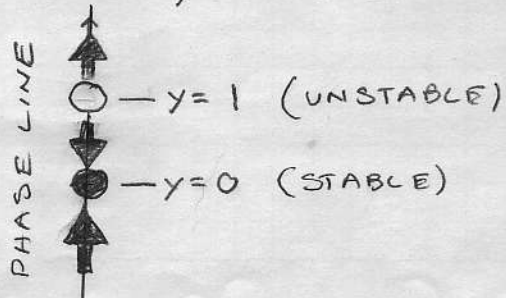 PHASE LINE
y = 1 (UNSTABLE)
y = 0 (STABLE)